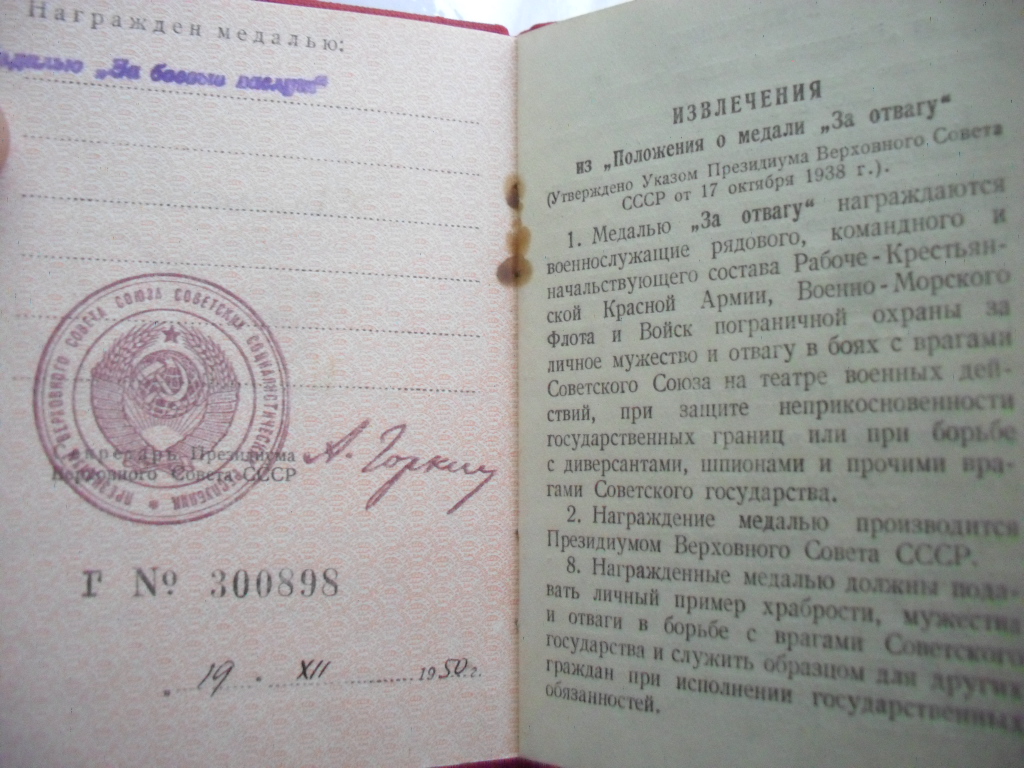 Награжден медалью:
медалью „За боевые заслуги“
ПРЕЗИДИУМ ВЕРХОВНОГО СОВЕТА СОЮЗА СОВЕТСКИХ СОЦИАЛИСТИЧЕСКИХ РЕСПУБЛИК
Секретарь Президиума
Верховного Совета СССР
А. Горкин
Г № 300898
19 XII 1950 г.
ИЗВЛЕЧЕНИЯ
из „Положения о медали „За отвагу“
(Утверждено Указом Президиума Верховного Совета
СССР от 17 октября 1938 г.).
1. Медалью „За отвагу“ награждаются
военнослужащие рядового, командного и
начальствующего состава Рабоче-Крестьян-
ской Красной Армии, Военно-Морского
Флота и Войск пограничной охраны за
личное мужество и отвагу в боях с врагами
Советского Союза на театре военных дей-
ствий, при защите неприкосновенности
государственных границ или при борьбе
с диверсантами, шпионами и прочими вра-
гами Советского государства.
2. Награждение медалью производится
Президиумом Верховного Совета СССР.
8. Награжденные медалью должны пода-
вать личный пример храбрости, мужества
и отваги в борьбе с врагами Советского
государства и служить образцом для других
граждан при исполнении государственных
обязанностей.